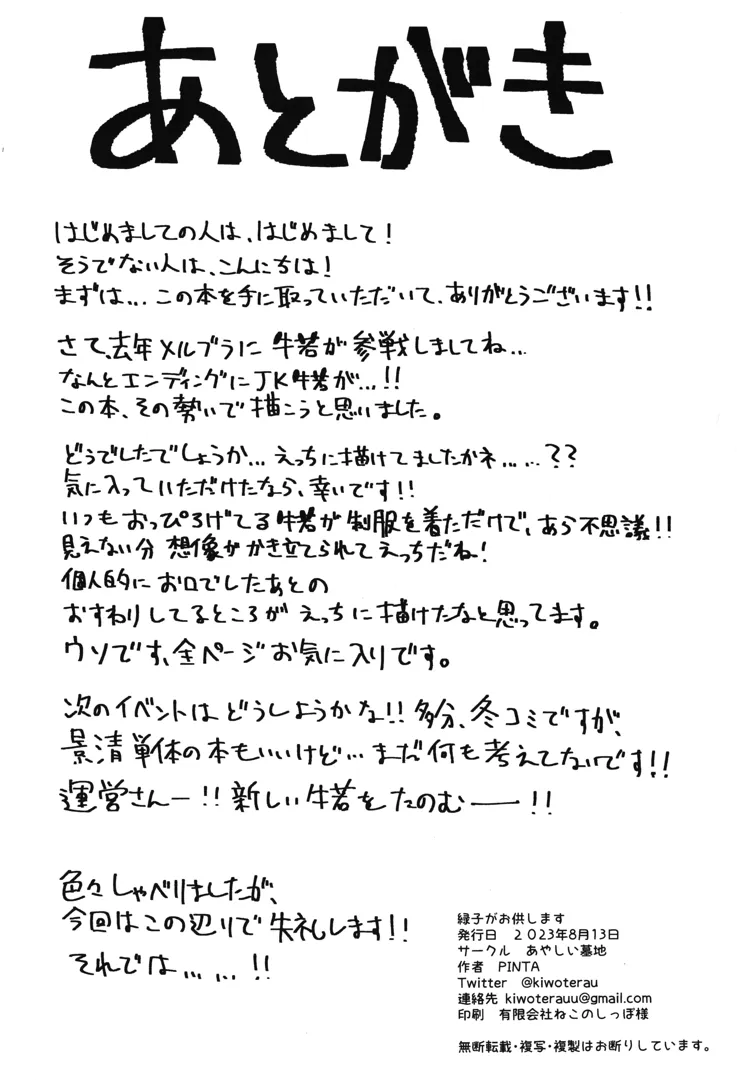 あとがき
はじめましての人は、はじめまして!
そうでない人は、こんにちは!
まずは... この本を手に取っていただいて、ありがとうございます!!
さて、去年メルブラに 牛若が参戦しましてね...
なんとエンディングにJK牛若が...!!
この本、その勢いで描こうと思いました。
どうでしたでしょうか... えっちに描けてましたかネ......??
気に入っていただけたなら、幸いです!!
いつもおっぴろげてる牛若が制服を着ただけで、あら不思議!!
見えない分 想像がかき立てられてえっちだね!
個人的にお口でしたあとの
おすわりしてるところがえっちに描けたなと思ってます。
ウソです、全ページお気に入りです。
次のイベントはどうしようかな!! 多分、冬コミですが、
景清単体の本もいいけど... まだ何も考えてないです!!
運営さんー!! 新しい牛若をたのむー!!
色々しゃべりましたが、
今回はこの辺りで失礼します!!
それでは......!!
緑子がお供します
発行日 2023年8月13日
サークル あやしい墓地
作者 PINTA
Twitter @kiwoterau
連絡先 kiwoterauu@gmail.com
印刷 有限会社ねこのしっぽ様
無断転載・複写・複製はお断りしています。